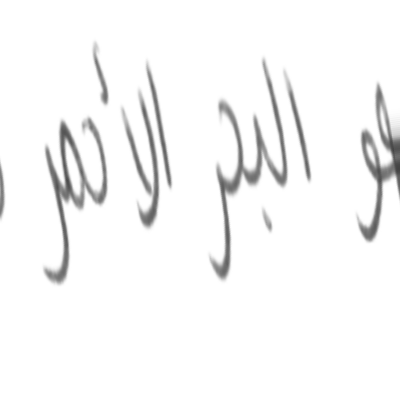 هو البحر الأحمر